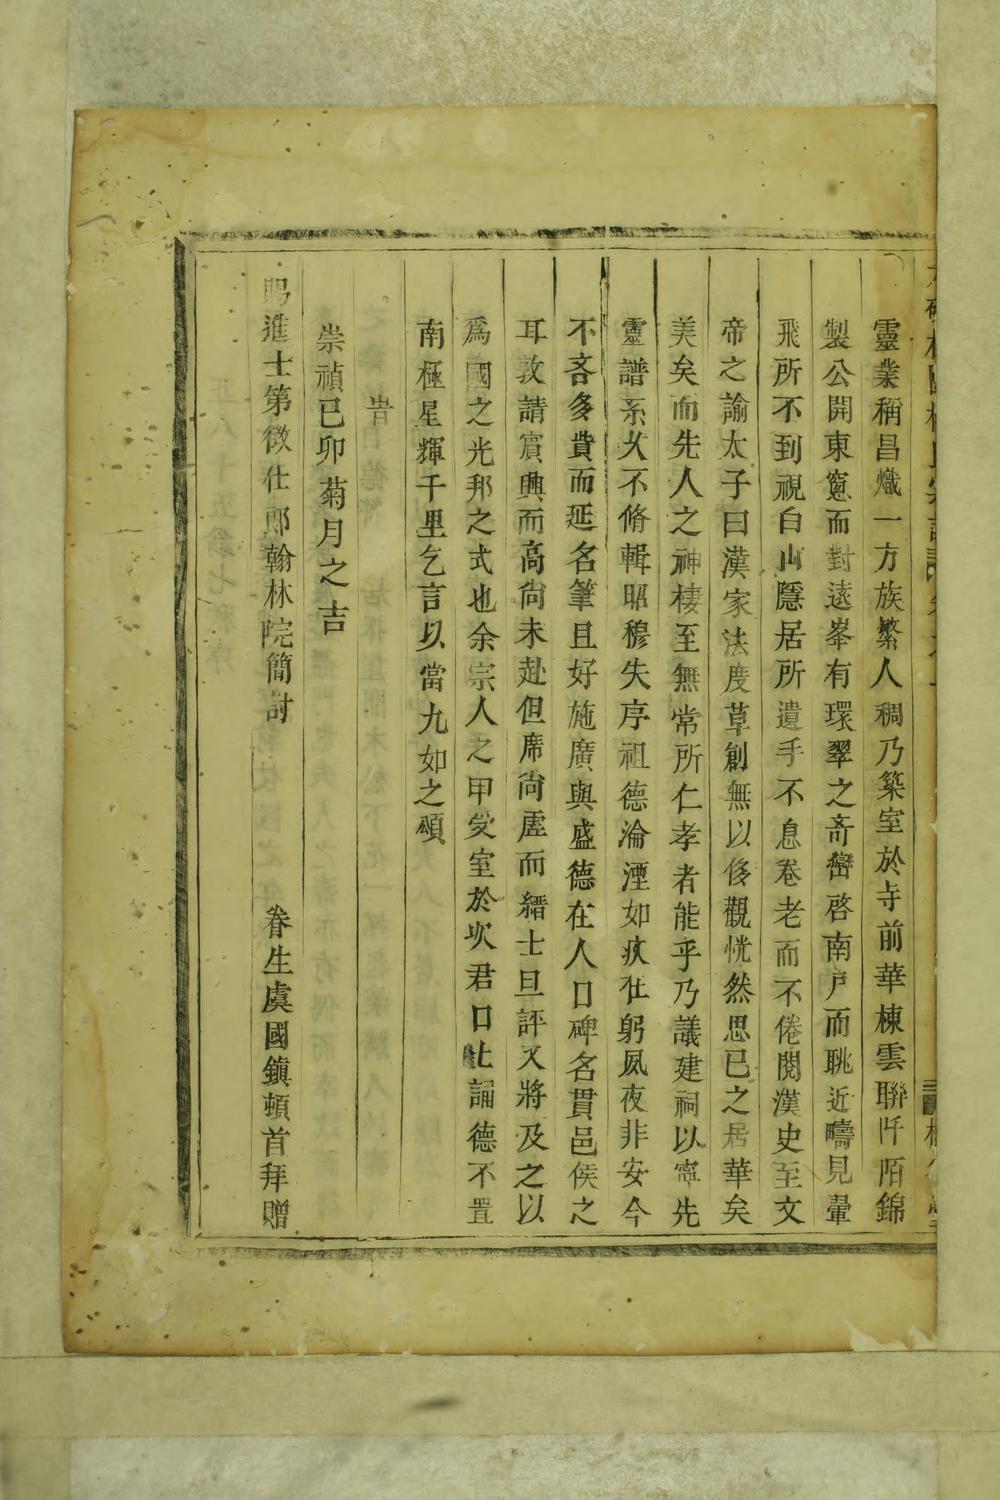 靈業稱昌熾一方族繁人稠乃築室於寺前華棟雲聯阡陌錦
製公開東窻而對遠峯有環翠之奇巒啓南戶而眺近疇見翬
飛所不到視白山隱居所遺手不息卷老而不倦閱漢史至文
帝之諭太子曰漢家法度草創無以侈觀恍然思已之居華矣
美矣而先人之神棲至無常所仁孝者能乎乃議建祠以寧先
靈譜系久不脩輯昭穆失序祖德淪湮如疚在躬夙夜非安今
不吝多貲而延名筆且好施廣與盛德在人口碑名貫邑侯之
耳敦請賓興而高尙未赴但席尙虛而縉士旦評又將及之以
爲國之光邦之式也余宗人之甲受室於坎君口七誦德不置
南極星輝千里乞言以當九如之頌
旹
崇禎己卯菊月之吉
賜進士第徵仕郎翰林院簡討　眷生虞國鎭頓首拜贈